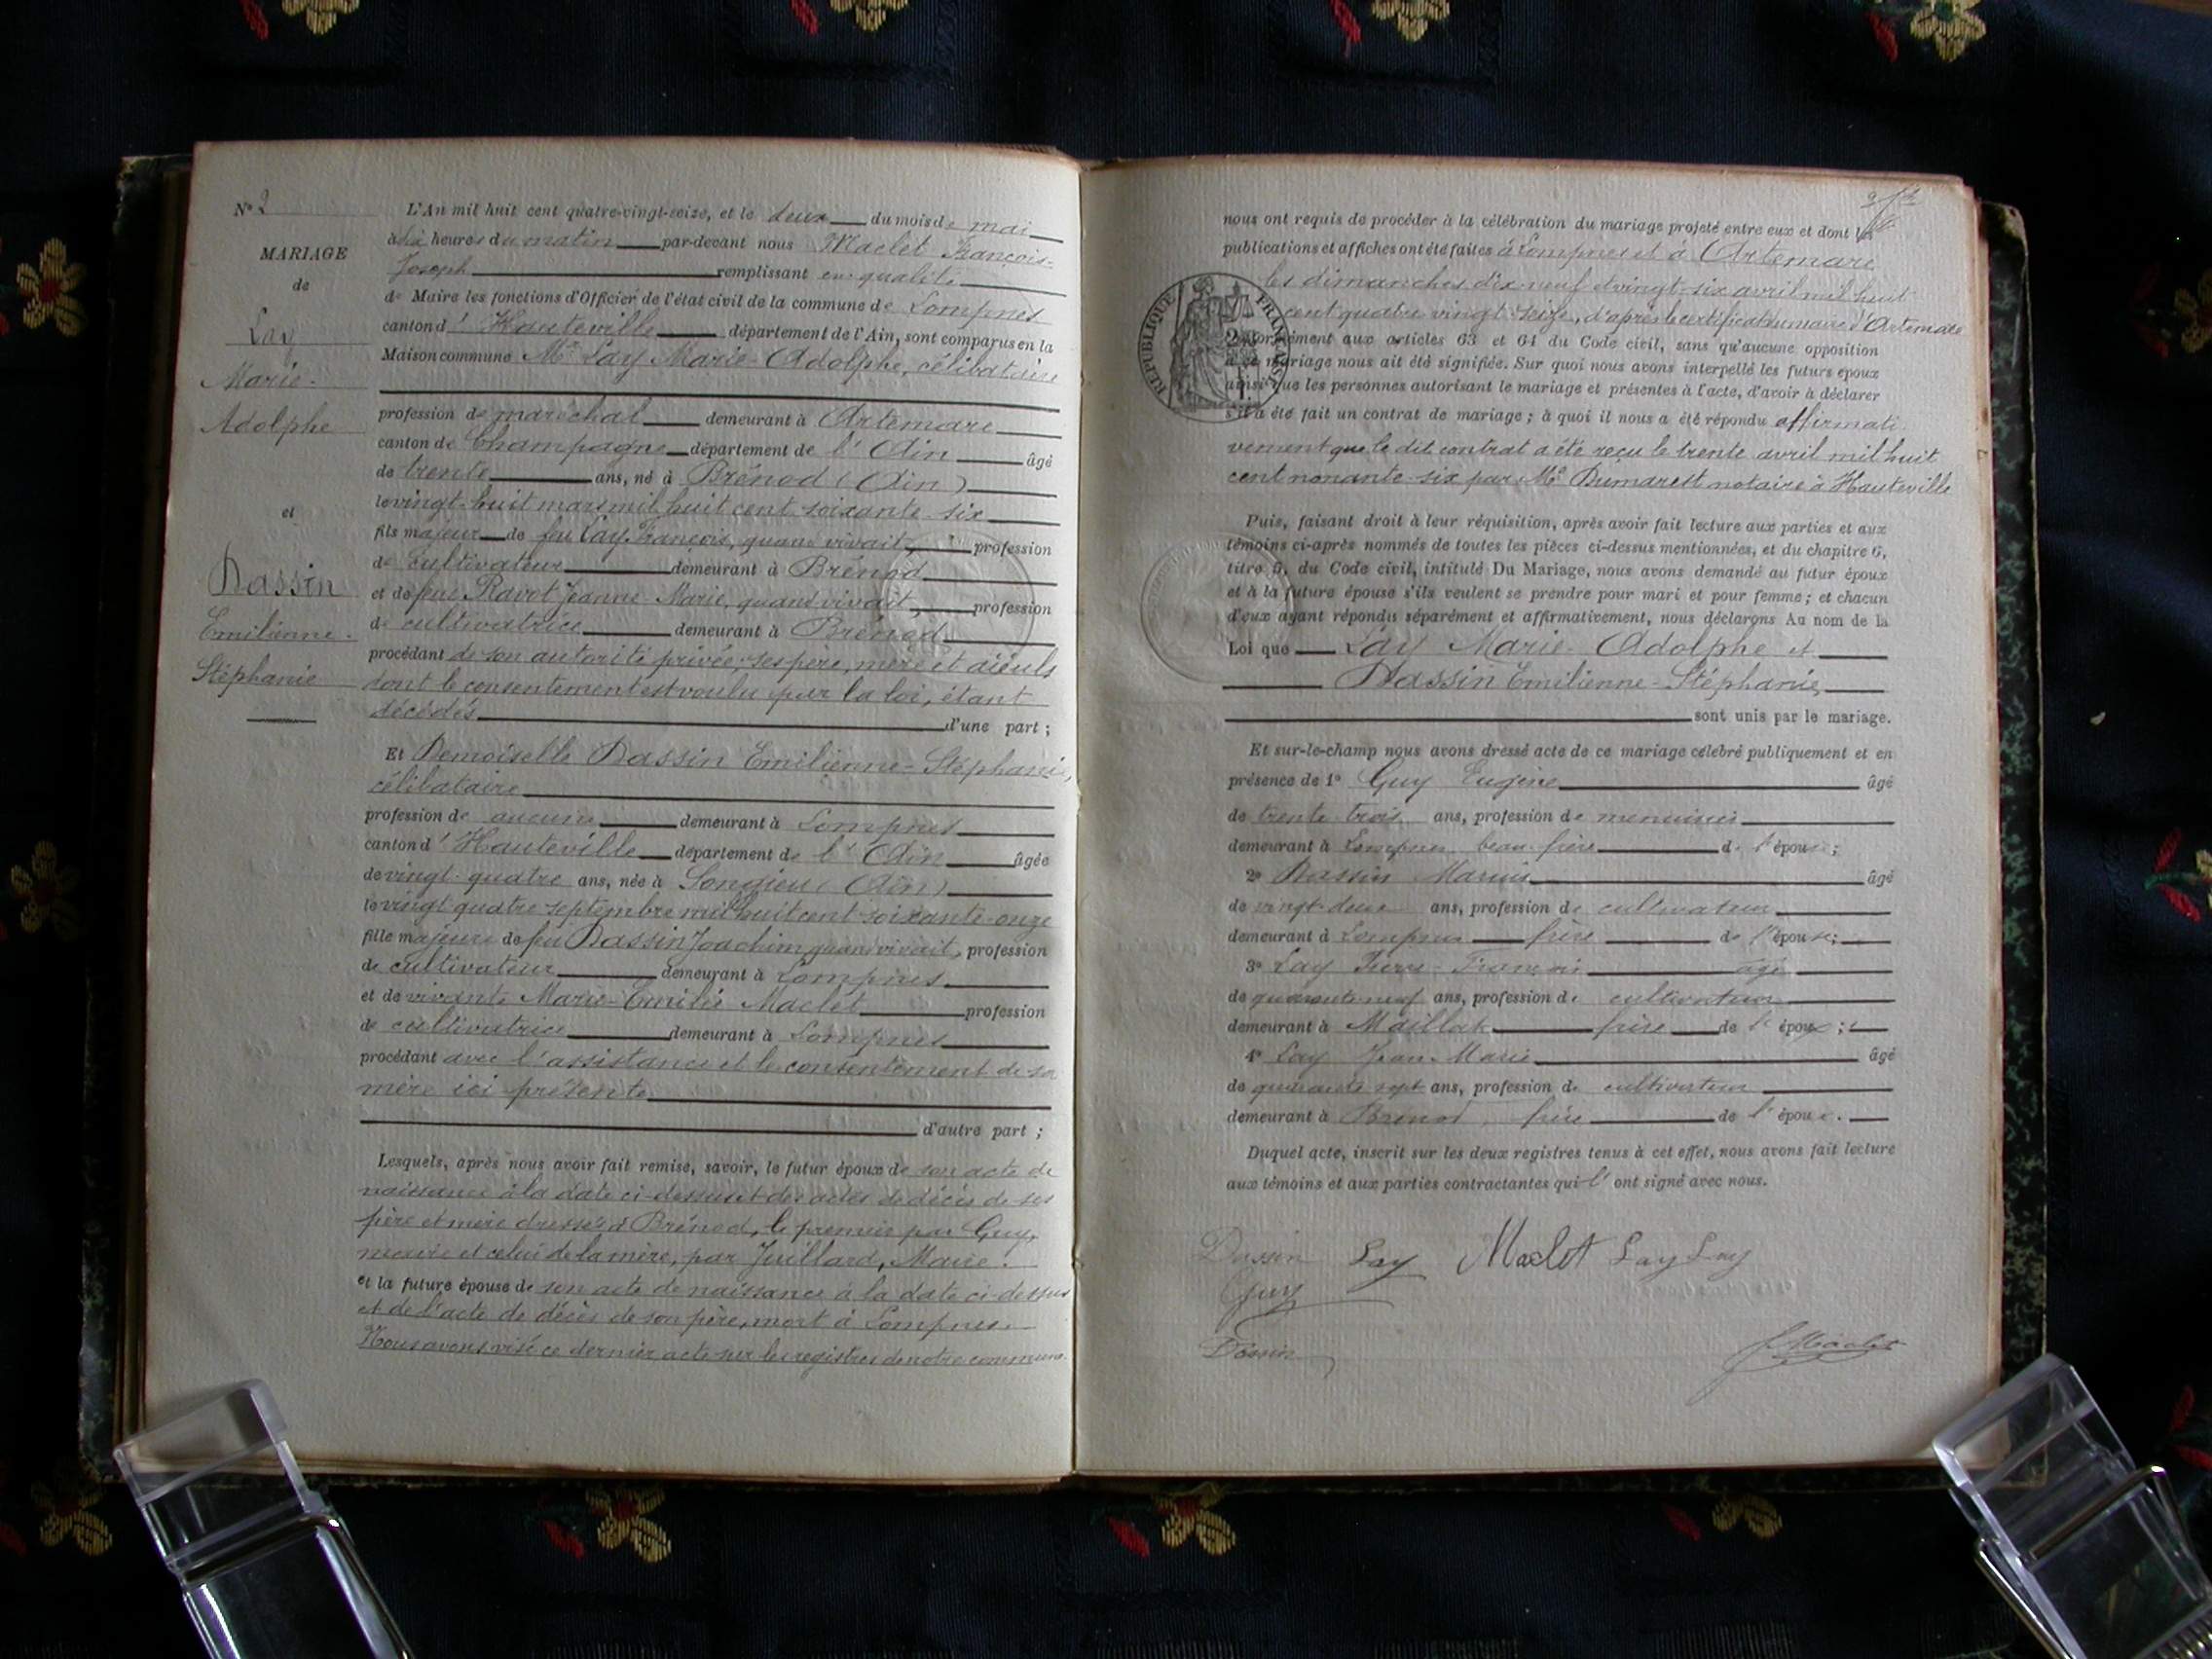 N° 2
MARIAGE
de
Lay
Marie-
Adolphe
et
Dassin
Emilienne-
Stéphanie
L'An mil huit cent quatre-vingt-seize, et le deux du mois de mai
à dix heures du matin par-devant nous Maclet François-
Joseph remplissant en qualité
de Maire les fonctions d'Officier de l'état civil de la commune de Lompnes
canton d'Hauteville département de l'Ain, sont comparus en la
Maison commune Mr Lay Marie-Adolphe, célibataire
profession de maréchal demeurant à Artemare
canton de Champagne département de l'Ain âgé
de trente ans, né à Brénod (Ain)
le vingt-huit mars mil huit cent soixante-six
fils majeur de feu Lay François, quand vivait, profession
de cultivateur demeurant à Brénod
et de feue Ravot Jeanne-Marie, quand vivait, profession
de cultivatrice demeurant à Brénod
procédant de son autorité privée, ses père, mère et aïeuls
dont le consentement est voulu par la loi, étant
décédés d'une part ;
Et Demoiselle Dassin Emilienne-Stéphanie,
célibataire
profession de aucune demeurant à Lompnes
canton d'Hauteville département de l'Ain âgée
de vingt-quatre ans, née à Songieu (Ain)
le vingt quatre septembre mil huit cent soixante-onze
fille majeure de feu Dassin Joachim quand vivait, profession
de cultivateur demeurant à Lompnes
et de vivante Marie-Emilie Maclet profession
de cultivatrice demeurant à Lompnes
procédant avec l'assistance et le consentement de sa
mère ici présente
d'autre part ;
Lesquels, après nous avoir fait remise, savoir, le futur époux de son acte de
naissance à la date ci-dessus et des actes de décès de ses
père et mère dressés à Brénod, le premier par Guy,
maire et celui de la mère, par Juillard, Maire.
et la future épouse de son acte de naissance à la date ci-dessus
et de l'acte de décès de son père, mort à Lompnes.
Nous avons visé ce dernier acte sur les registres de notre commune.
nous ont requis de procéder à la célébration du mariage projeté entre eux et dont les
publications et affiches ont été faites à Lompnes et à Artemare
les dimanches dix-neuf et vingt-six avril mil huit
cent quatre vingt-seize, d'après le certificat du maire d'Artemare
conformément aux articles 63 et 64 du Code civil, sans qu'aucune opposition
à ce mariage nous ait été signifiée. Sur quoi nous avons interpellé les futurs époux
ainsi que les personnes autorisant le mariage et présentes à l'acte, d'avoir à déclarer
s'il a été fait un contrat de mariage ; à quoi il nous a été répondu affirmati-
vement que le dit contrat a été reçu le trente avril mil huit
cent nonante-six par Me Dumarest notaire à Hauteville
RÉPUBLIQUE FRANÇAISE
Puis, faisant droit à leur réquisition, après avoir fait lecture aux parties et aux
témoins ci-après nommés de toutes les pièces ci-dessus mentionnées, et du chapitre 6,
titre 5, du Code civil, intitulé Du Mariage, nous avons demandé au futur époux
et à la future épouse s'ils veulent se prendre pour mari et pour femme ; et chacun
d'eux ayant répondu séparément et affirmativement, nous déclarons Au nom de la
Loi que Lay Marie-Adolphe et
Dassin Emilienne-Stéphanie,
sont unis par le mariage.
Et sur-le-champ nous avons dressé acte de ce mariage célébré publiquement et en
présence de 1° Guy Eugène âgé
de trente trois ans, profession de menuisier
demeurant à Lompnes beau-frère de l'épouse ;
2° Dassin Marius âgé
de vingt-deux ans, profession de cultivateur
demeurant à Lompnes frère de l'épouse ;
3° Lay Pierre-François âgé
de quarante neuf ans, profession de cultivateur
demeurant à Maillat frère de l'époux ;
4° Lay Jean-Marie âgé
de quarante sept ans, profession de cultivateur
demeurant à Brenod, frère de l'époux.
Duquel acte, inscrit sur les deux registres tenus à cet effet, nous avons fait lecture
aux témoins et aux parties contractantes qui l'ont signé avec nous.
Dassin Lay Maclet Lay Lay
Guy
Dassin
J Maclet